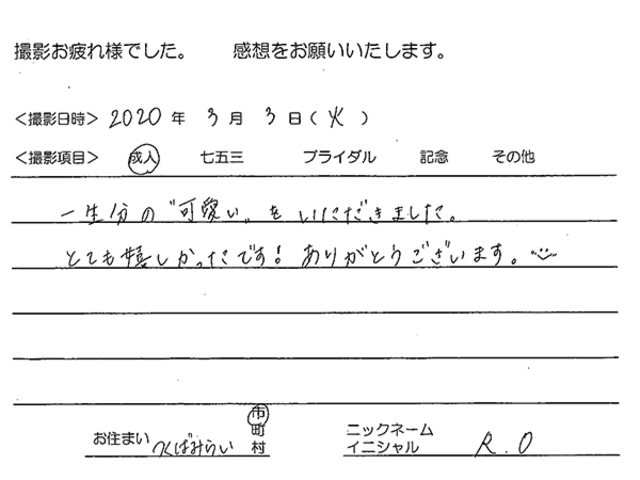 撮影お疲れ様でした。　感想をお願いいたします。
＜撮影日時＞ 2020 年 3 月 3 日（ 火 ）
＜撮影項目＞ 成人 七五三 ブライダル 記念 その他
一生分の"可愛い"をいただきました。
とても嬉しかったです！ありがとうございます。
お住まい つくばみらい 市 町 村
ニックネーム イニシャル R.O